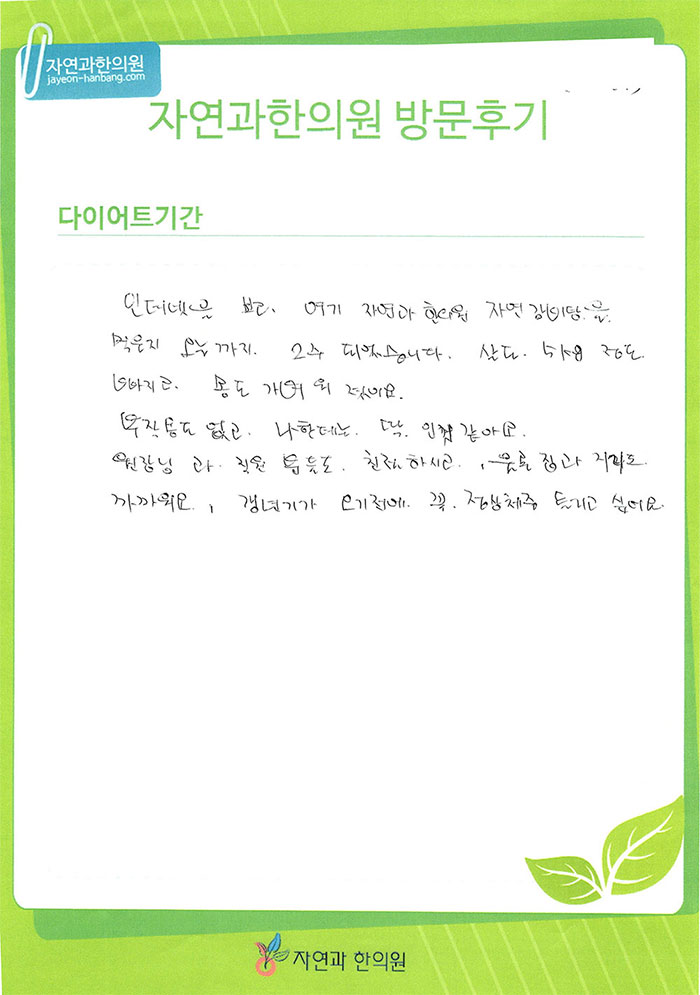 자연과한의원
jayeon-hanbang.com
자연과한의원 방문후기
다이어트기간
인터넷을 보고. 여기 자연과 한의원 자연 경비탕을.
먹은지 오늘까지. 2주 되었습니다. 살도. 정도
빠지고. 몸도 가벼워 졌어요.
부작용도 없고. 나한테는. 딱. 인것 같아요.
원장님 과. 직원 분들도. 친절하시고.,
까까워요., 갱년기가 오기전에. 꼭. 정상체중 돌리고 싶어요
자연과 한의원